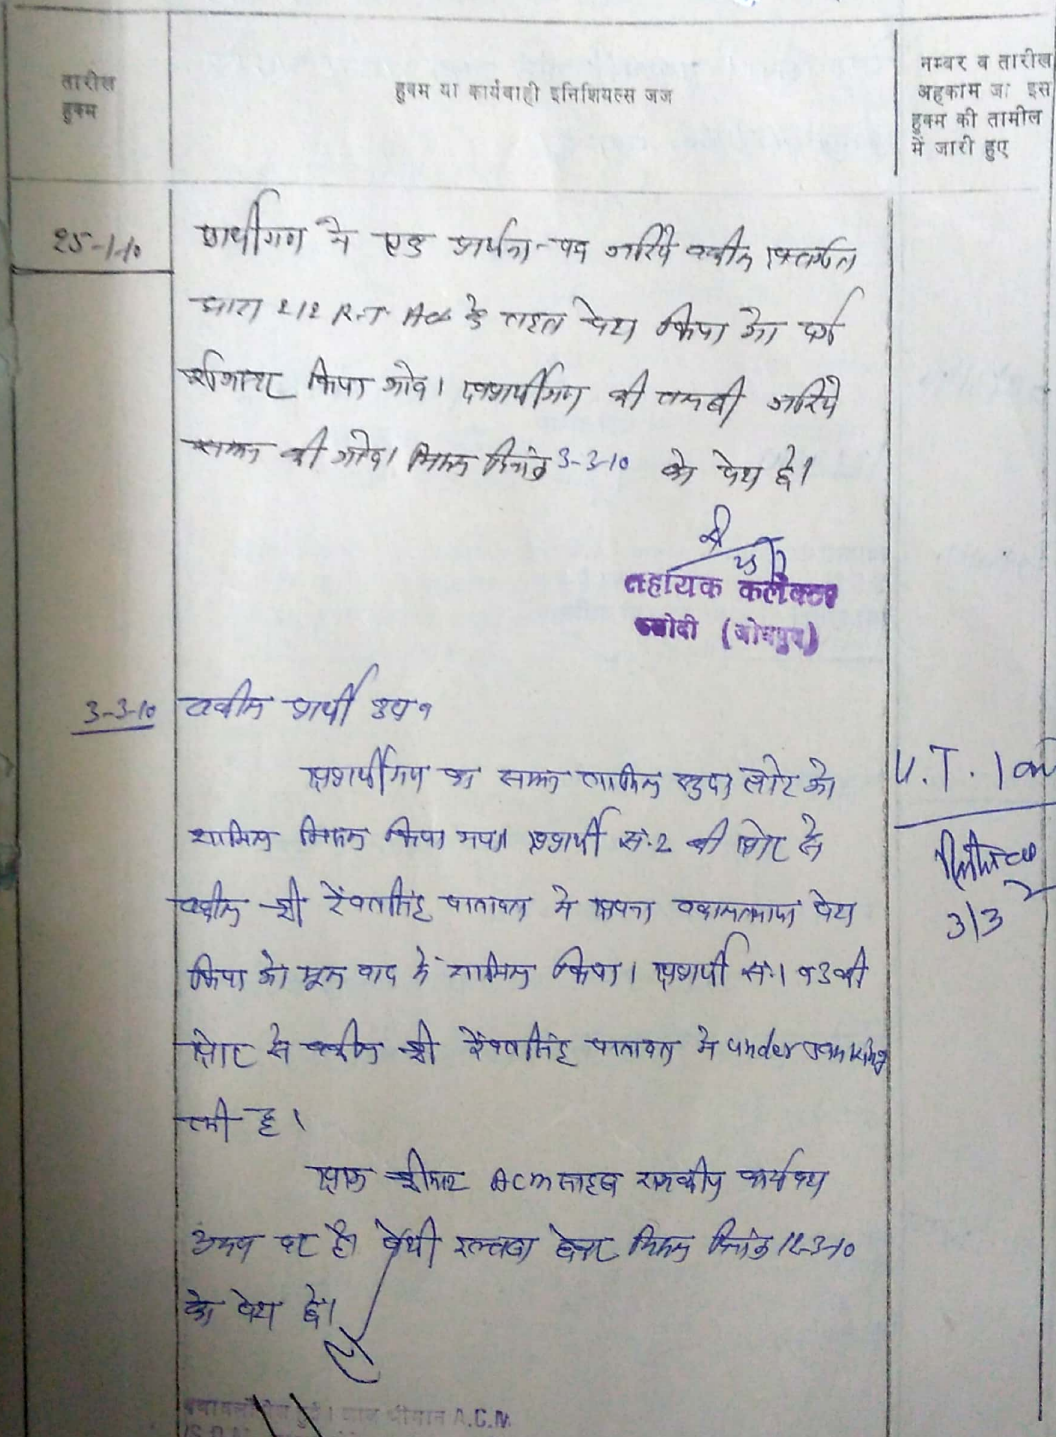 तारीख
हुक्म
हुक्म या कार्यवाही इनिशियल्स जज
नम्बर व तारीख
अहकाम जो इस
हुक्म की तामील
में जारी हुए
25-1-10
प्रार्थीगण ने एक प्रार्थना-पत्र जरिये वकील अन्तर्गत
धारा 212 R.T. Act के तहत पेश किया जो दर्ज
रजिस्टर किया जावे। अप्रार्थीगण की तलबी जरिये
सम्मन की जावे। मिसल दिनांक 3-3-10 को पेश हो।
सहायक कलेक्टर
फलोदी (जोधपुर)
3-3-10
वकील प्रार्थी उप०
अप्रार्थीगण का सम्मन तामिल सुदा लौट के
शामिल मिसल किया गया। अप्रार्थी सं. 2 की ओर से
वकील श्री रेंवतसिंह पातावत ने अपना वकालतनामा पेश
किया जो मूल वाद में शामिल किया। अप्रार्थी सं. 1 व 3 की
ओर से वकील श्री रेंवतसिंह पातावत ने under
ली है।
आज श्रीमान ACM साहब राजकीय कार्य
पर है। पेशी होकर मिसल दिनांक 12-3-10
को पेश हो।
U.T. 1
3/3
हुई। आज श्रीमान A.C.M.